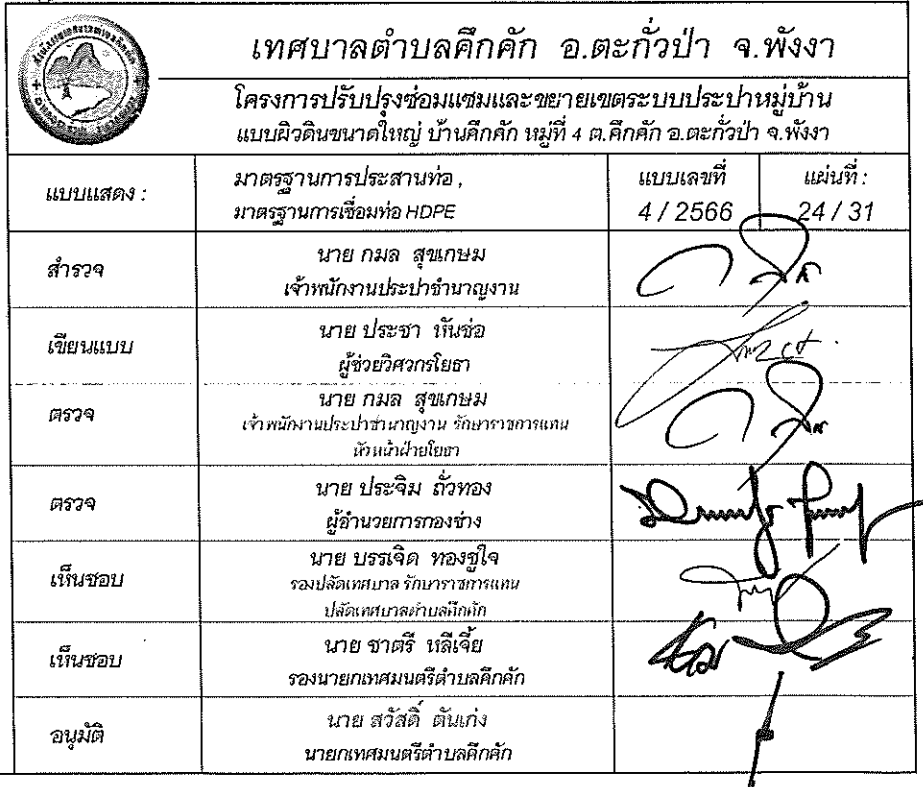 เทศบาลตำบลคึกคัก อ.ตะกั่วป่า จ.พังงา
โครงการปรับปรุงซ่อมแซมและขยายเขตระบบประปาหมู่บ้าน
แบบผิวดินขนาดใหญ่ บ้านคึกคัก หมู่ที่ 4 ต.คึกคัก อ.ตะกั่วป่า จ.พังงา
แบบแสดง :
มาตรฐานการประสานท่อ ,
มาตรฐานการเชื่อมท่อ HDPE
แบบเลขที่
4 / 2566
แผ่นที่ :
24 / 31
สำรวจ
นาย กมล สุขเกษม
เจ้าพนักงานประปาชำนาญงาน
เขียนแบบ
นาย ประชา หันช่อ
ผู้ช่วยวิศวกรโยธา
ตรวจ
นาย กมล สุขเกษม
เจ้าพนักงานประปาชำนาญงาน รักษาราชการแทน
หัวหน้าฝ่ายโยธา
ตรวจ
นาย ประจิม ถั่วทอง
ผู้อำนวยการกองช่าง
เห็นชอบ
นาย บรรเจิด ทองชูใจ
รองปลัดเทศบาล รักษาราชการแทน
ปลัดเทศบาลตำบลคึกคัก
เห็นชอบ
นาย ชาตรี หลีเจี้ย
รองนายกเทศมนตรีตำบลคึกคัก
อนุมัติ
นาย สวัสดิ์ ตันเก่ง
นายกเทศมนตรีตำบลคึกคัก